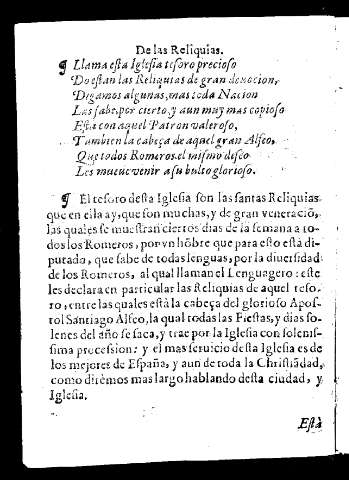 De las Reliquias.
¶ Llama esta Iglesia tesoro precioso
Do estan las Reliquias de gran deuocion,
Digamos algunas, mas toda Nacion
Las sabe, por cierto, y aun muy mas copioso
Esta con aquel Patron valeroso,
Tambien la cabeça de aquel gran Alfeo,
Que todos Romeros, el mismo deseo
Les mueue venir a su bulto glorioso.
¶ El tesoro desta Iglesia son las santas Reliquias
que en ella ay, que son muchas, y de gran veneraciõ,
las quales se muestran ciertos dias de la semana a to-
dos los Romeros, por vn hõbre que para esto està di-
putado, que sabe de todas lenguas, por la diuersidad
de los Romeros, al qual llaman el Lenguagero: este
les declara en particular las Reliquias de aquel teso-
ro, entre las quales està la cabeça del glorioso Apos-
tol Santiago Alfeo, la qual todas las Fiestas, y dias so-
lenes del año se saca, y trae por la Iglesia con solenis-
sima procession: y el mas seruicio desta Iglesia es de
los mejores de España, y aun de toda la Christiãdad,
como dirèmos mas largo hablando desta ciudad, y
Iglesia.
Està